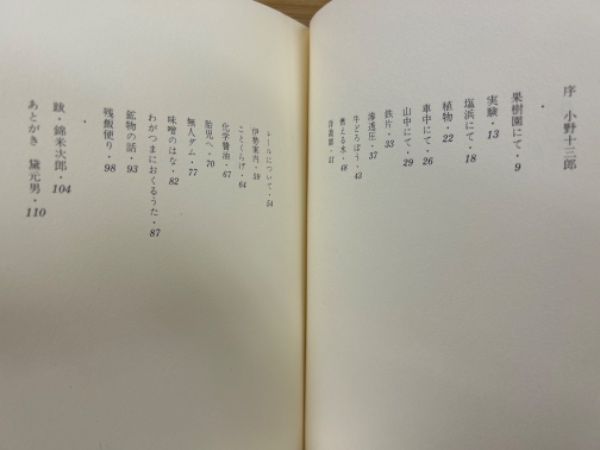 序 小野十三郎
・
果樹園にて・9
実験・13
塩浜にて・18
植物・22
車中にて・26
山中にて・29
鉄片・33
滲透圧・37
牛どろぼう・43
燃える水・48
・51
レールについて・54
伊勢案内・59
ことくらげ・64
化学醤油・67
胎児へ・70
無人ダム・77
味噌のはな・82
わがつまにおくるうた・87
鉱物の話・93
残飯便り・98
・
跋・錦米次郎・104
あとがき 黛元男・110